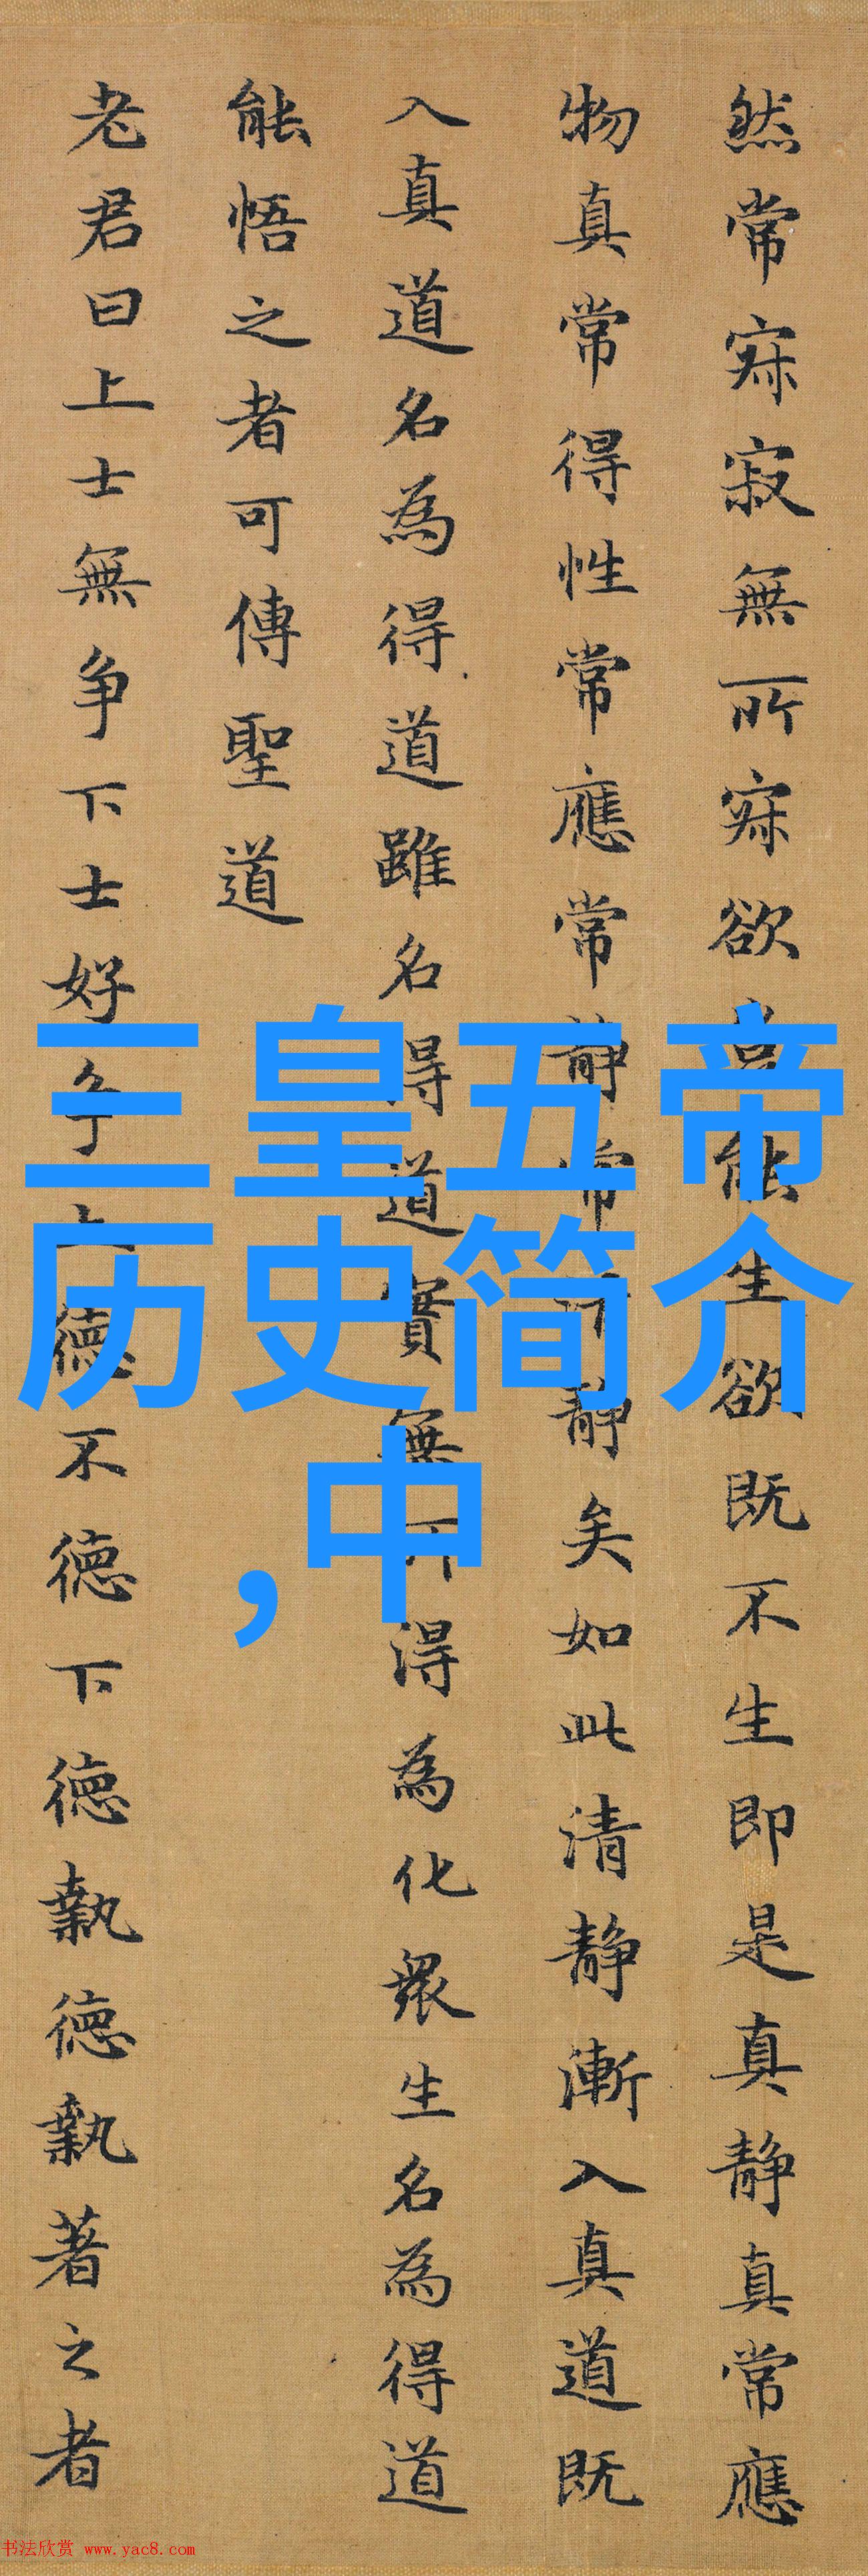 然常寂寂無所寂欲豈能生欲既不生即是真静真常應
物真常得性常應常静常清静矣如此清静漸入真道既
入真道名為得道雖名得道實無所得為化眾生名為得道
能悟之者可傳聖道
老君曰上士無争下士好争上德不德下德執德執著之者
三皇五帝
历史简介
,中
书法欣赏 www.yac8.com